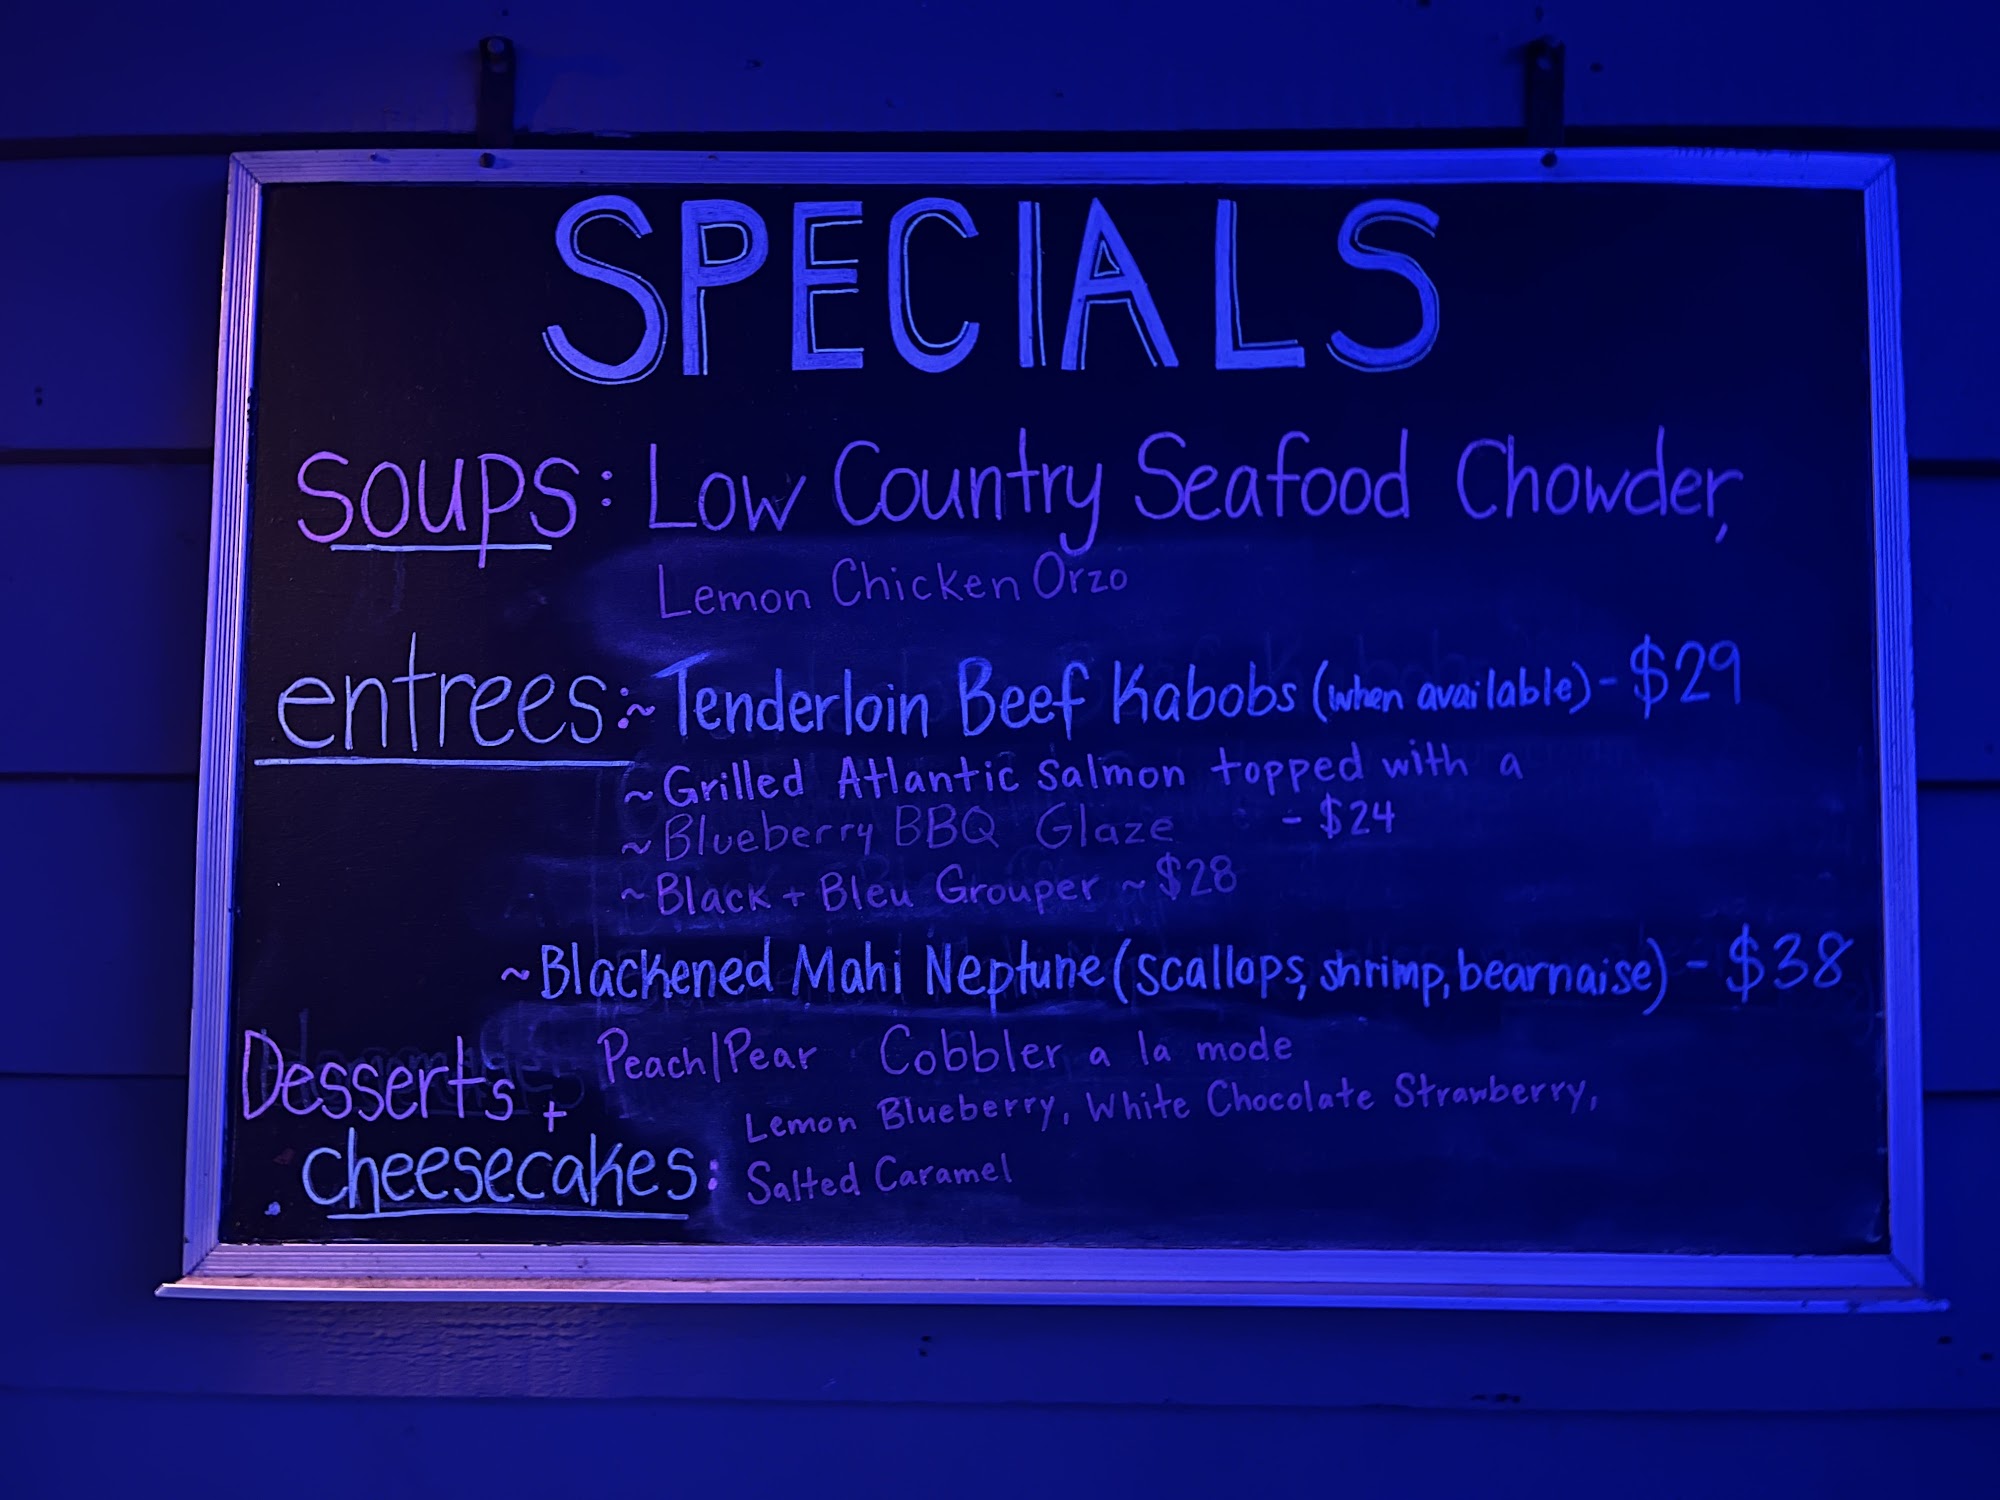 SPECIALS
soups: Low Country Seafood Chowder,
Lemon Chicken Orzo
entrees: ~ Tenderloin Beef Kabobs (when available) - $29
~ Grilled Atlantic Salmon topped with a
~ Blueberry BBQ Glaze - $24
~ Black + Bleu Grouper ~ $28
~ Blackened Mahi Neptune (scallops, shrimp, bearnaise) - $38
Desserts + Peach/Pear Cobbler a la mode
cheesecakes: Lemon Blueberry, White Chocolate Strawberry,
Salted Caramel